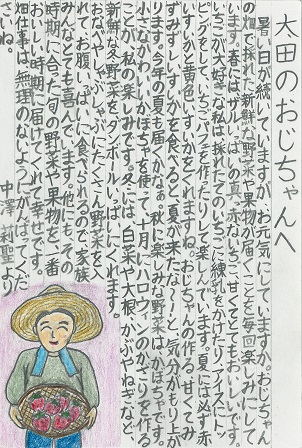 太田のおじちゃんへ
暑い日が続いていますが、お元気にしていますか。おじちゃん
の畑で採れた新鮮な野菜や果物が届くことを毎回楽しみにして
います。春にはザルいっぱいの真っ赤ないちご。甘くてとてもおいしいです。
いちごが大好きな私は採れたてのいちごに練乳をかけたり、アイスにト
ッピングをして、いちごパフェを作ったりして楽しんでいます。夏には必ず
すいかと黄色いすいかをくれますね。おじちゃんの作る、甘くてみ
ずみずしいすいかを食べると、「夏が来たな〜！」と、気分がもり上が
ります。今年の夏も届くかなぁ。秋に楽しみな野菜は、かぼちゃです。
小さなかわいいかぼちゃを使って、十月にハロウィンのかざりを作る
ことが、私の楽しみです。冬には、白菜や大根、かぶやねぎなど、
新鮮な冬野菜を、ダンボールいっぱいにくれます。
おなべや、しゃぶしゃぶにたくさん野菜を入
れて、お腹いっぱいに食べられるので、家族
みんなとても喜んでいます。他にも、その
時期に合った旬の野菜や果物を、一番
おいしい時期に届けてくれて幸せです。
畑仕事は、無理のないようにがんばってくだ
さいね。
中澤 莉聖より